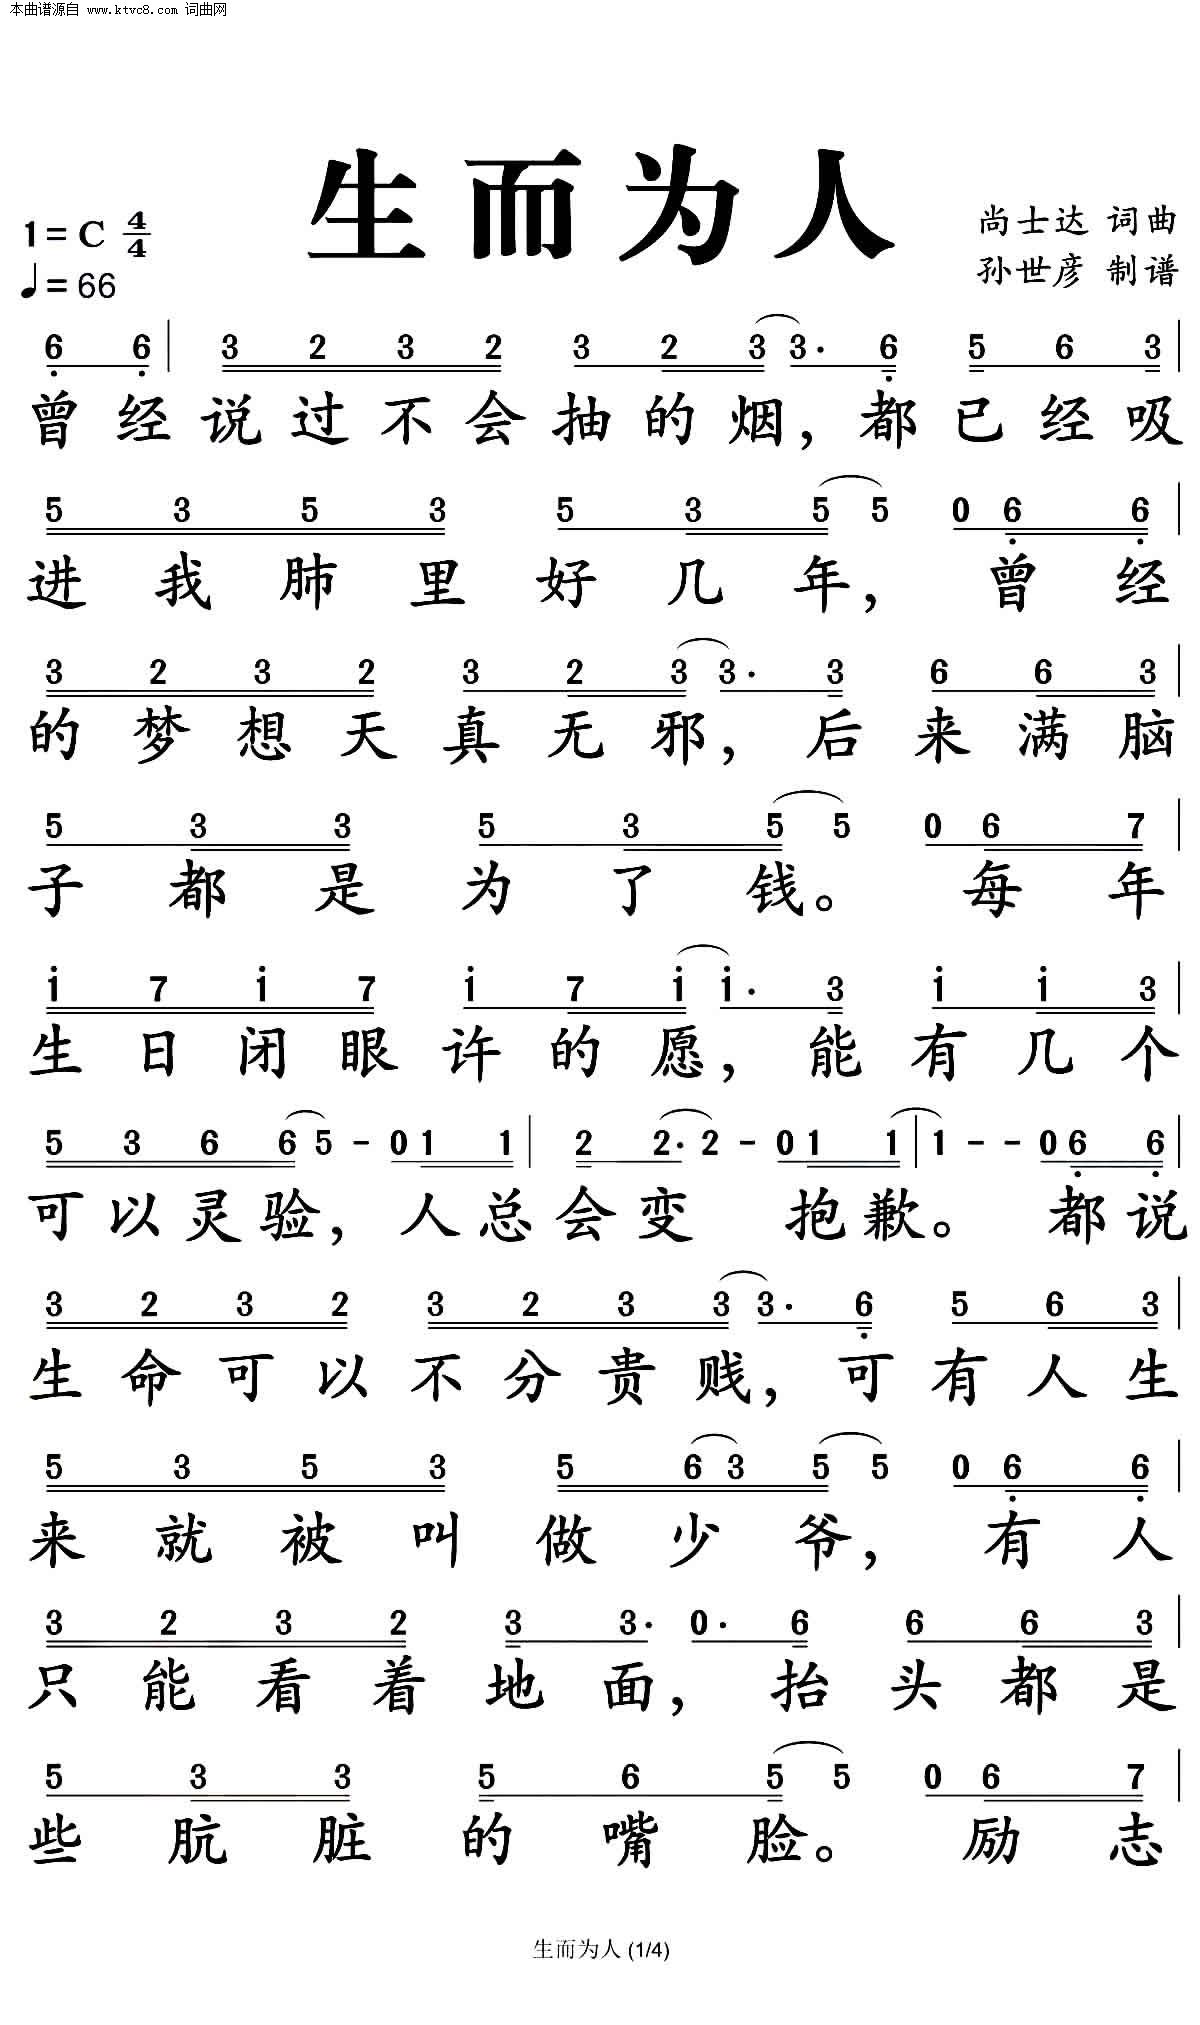 本曲谱源自 www.ktvc8.com 词曲网
生而为人
1=C 4/4
尚士达 词曲
♩=66
孙世彦 制谱
6̣ 6̣ | 3 2 3 2 3 2 3 3· 6̣ 5 6 3 |
曾经说过不会抽的烟，都已经吸
5 3 5 3 5 3 5 5 0 6̣ 6̣ |
进我肺里好几年，曾经
3 2 3 2 3 2 3 3· 3 6 6 3 |
的梦想天真无邪，后来满脑
5 3 3 5 3 5 5 0 6 7 |
子都是为了钱。每年
i 7 i 7 i 7 i i· 3 i i 3 |
生日闭眼许的愿，能有几个
5 3 6 6 5 - 0 1 1 | 2 2· 2 - 0 1 1 | 1 - - 0 6̣ 6̣ |
可以灵验，人总会变 抱歉。都说
3 2 3 2 3 2 3 3 3· 6̣ 5 6 3 |
生命可以不分贵贱，可有人生
5 3 5 3 5 6 3 5 5 0 6̣ 6̣ |
来就被叫做少爷，有人
3 2 3 2 3 3· 0· 6 6 6 3 |
只能看着地面，抬头都是
5 3 3 5 6 5 5 0 6 7 |
些肮脏的嘴脸。励志
生而为人 (1/4)